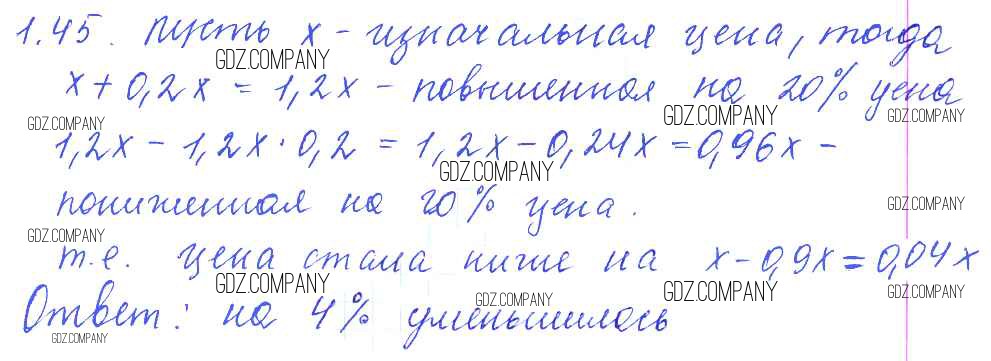 1.45. пусть x - изначальная цена, тогда
GDZ.COMPANY
x + 0,2x = 1,2x - повышенная на 20% цена
GDZ.COMPANY GDZ.COMPANY GDZ.COMPANY
1,2x - 1,2x · 0,2 = 1,2x - 0,24x = 0,96x -
GDZ.COMPANY
пониженная на 20% цена.
GDZ.COMPANY
GDZ.COMPANY
т.е. цена стала ниже на x - 0,9x = 0,04x
GDZ.COMPANY GDZ.COMPANY GDZ.COMPANY GDZ.COMPANY
Ответ: на 4% уменьшилась
GDZ.COMPANY